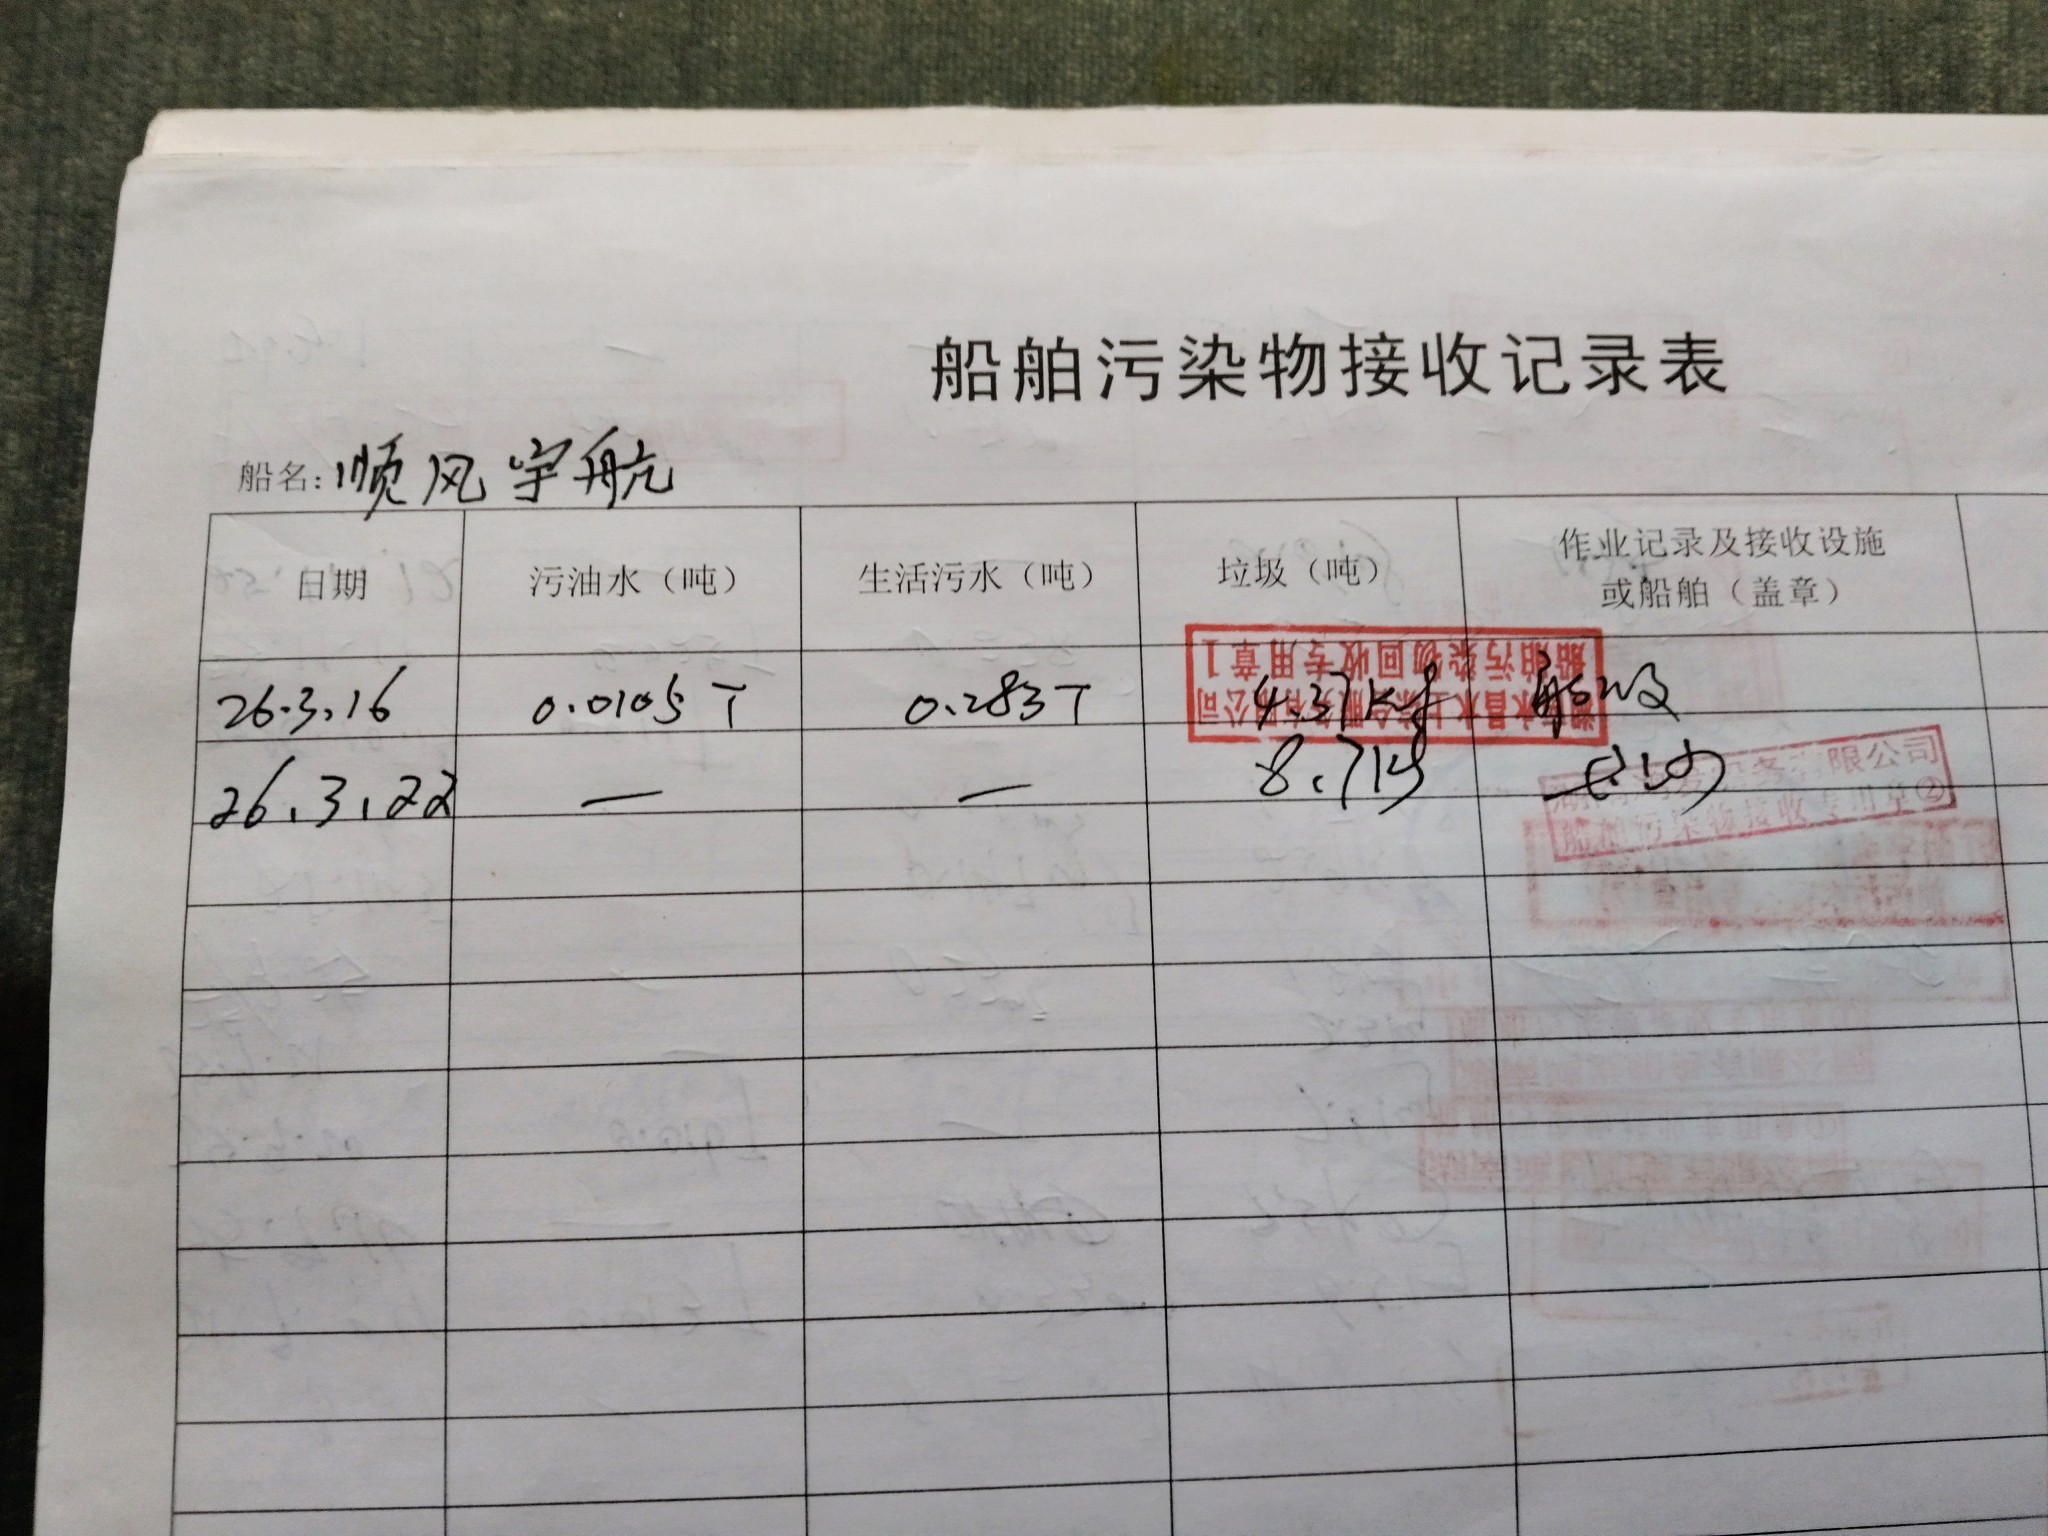 船舶污染物接收记录表
船名: 顺风宇航
日期 污油水（吨） 生活污水（吨） 垃圾（吨） 作业记录及接收设施或船舶（盖章）
26.3.16 0.0105 T 0.283 T 4.37 Kg
船舶污染物回收专用章1
26.3.22 — — 8.7 kg
务有限公司
船舶污染物接收专用章②